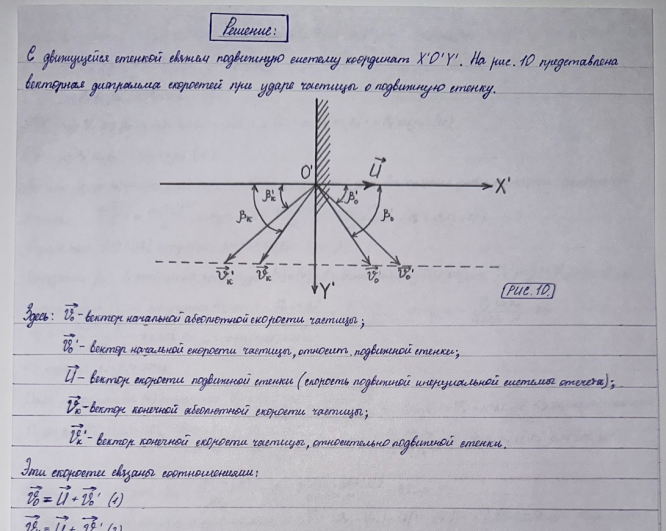 Решение:
С движущейся стенкой свяжем подвижную систему координат X'O'Y'. На рис. 10 представлена
векторная диаграмма скоростей при ударе частицы о подвижную стенку.
O'
U⃗
X'
βк
βк'
β₀'
β₀
v⃗к'
v⃗к
v⃗₀'
v⃗₀'
Y'
РИС. 10.
Здесь: v⃗₀ - вектор начальной абсолютной скорости частицы;
v⃗₀' - вектор начальной скорости частицы, относит. подвижной стенки;
U⃗ - вектор скорости подвижной стенки (скорость подвижной инерциальной системы отсчета);
v⃗к - вектор конечной абсолютной скорости частицы;
v⃗к' - вектор конечной скорости частицы, относительно подвижной стенки.
Эти скорости связаны соотношениями:
v⃗₀ = U⃗ + v⃗₀' (1)